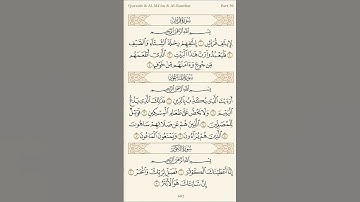 Quraish & Al Ma'un & Al Kauthar Part 30
سُورَةُ قُرَيْشٍ
بِسْمِ ٱللَّهِ ٱلرَّحْمَٰنِ ٱلرَّحِيمِ
لِإِيلَٰفِ قُرَيْشٍ ١ إِۦلَٰفِهِمْ رِحْلَةَ ٱلشِّتَآءِ وَٱلصَّيْفِ
٢ فَلْيَعْبُدُوا۟ رَبَّ هَٰذَا ٱلْبَيْتِ ٣ ٱلَّذِىٓ أَطْعَمَهُم
مِّن جُوعٍ وَءَامَنَهُم مِّنْ خَوْفٍۭ ٤
سُورَةُ ٱلْمَاعُونِ
بِسْمِ ٱللَّهِ ٱلرَّحْمَٰنِ ٱلرَّحِيمِ
أَرَءَيْتَ ٱلَّذِى يُكَذِّبُ بِٱلدِّينِ ١ فَذَٰلِكَ ٱلَّذِى يَدُعُّ
ٱلْيَتِيمَ ٢ وَلَا يَحُضُّ عَلَىٰ طَعَامِ ٱلْمِسْكِينِ ٣ فَوَيْلٌ
لِّلْمُصَلِّينَ ٤ ٱلَّذِينَ هُمْ عَن صَلَاتِهِمْ سَاهُونَ
٥ ٱلَّذِينَ هُمْ يُرَآءُونَ ٦ وَيَمْنَعُونَ ٱلْمَاعُونَ ٧
سُورَةُ ٱلْكَوْثَرِ
بِسْمِ ٱللَّهِ ٱلرَّحْمَٰنِ ٱلرَّحِيمِ
إِنَّآ أَعْطَيْنَٰكَ ٱلْكَوْثَرَ ١ فَصَلِّ لِرَبِّكَ وَٱنْحَرْ ٢
إِنَّ شَانِئَكَ هُوَ ٱلْأَبْتَرُ ٣
602